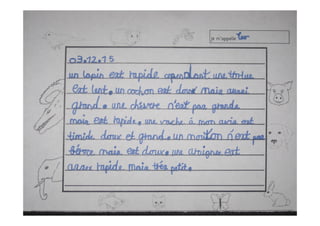 je m'appelle
03.12.15
un lapin est rapide cependant une tortue
est lent. un cochon est doux mais aussi
grand. une chèvre n'est pas grande
mais est rapide. une vache à mon avis est
timide doux et grand. un mouton n'est pas
féroce mais est doux. une araignée est
assez rapide mais très petite.